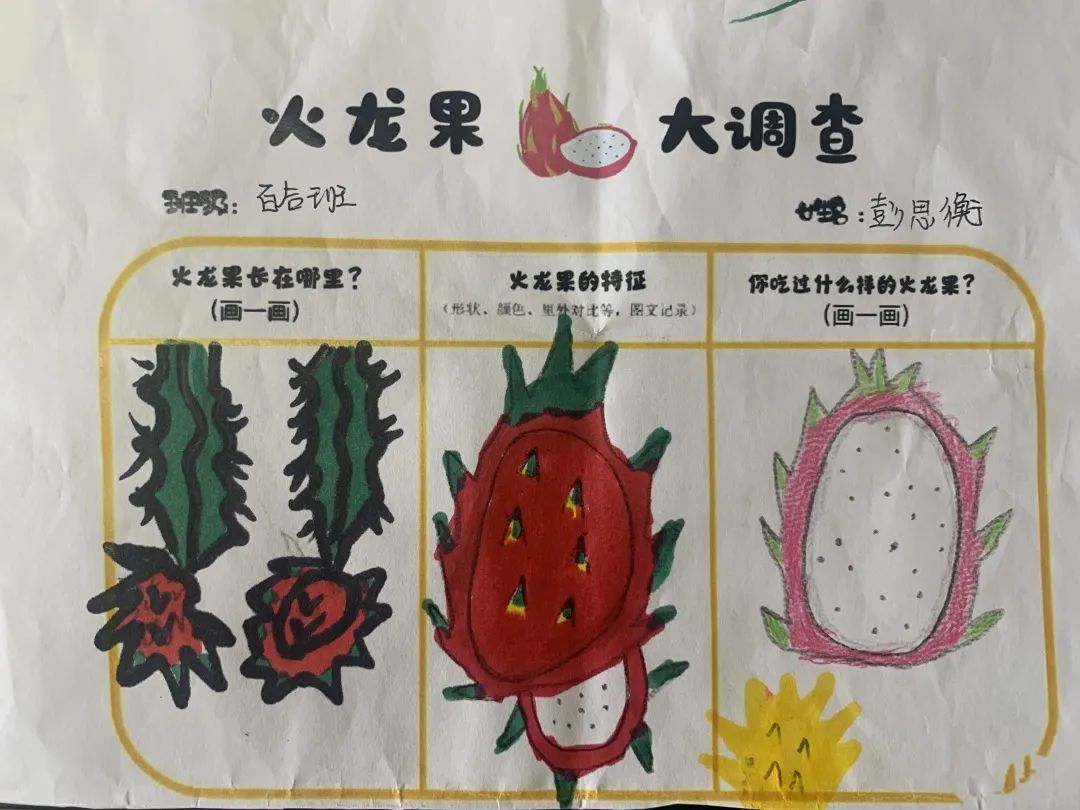 火龙果 大调查
班级：百合班
姓名：彭思衡
火龙果长在哪里？
（画一画）
火龙果的特征
（形状、颜色、里外对比等，图文记录）
你吃过什么样的火龙果？
（画一画）